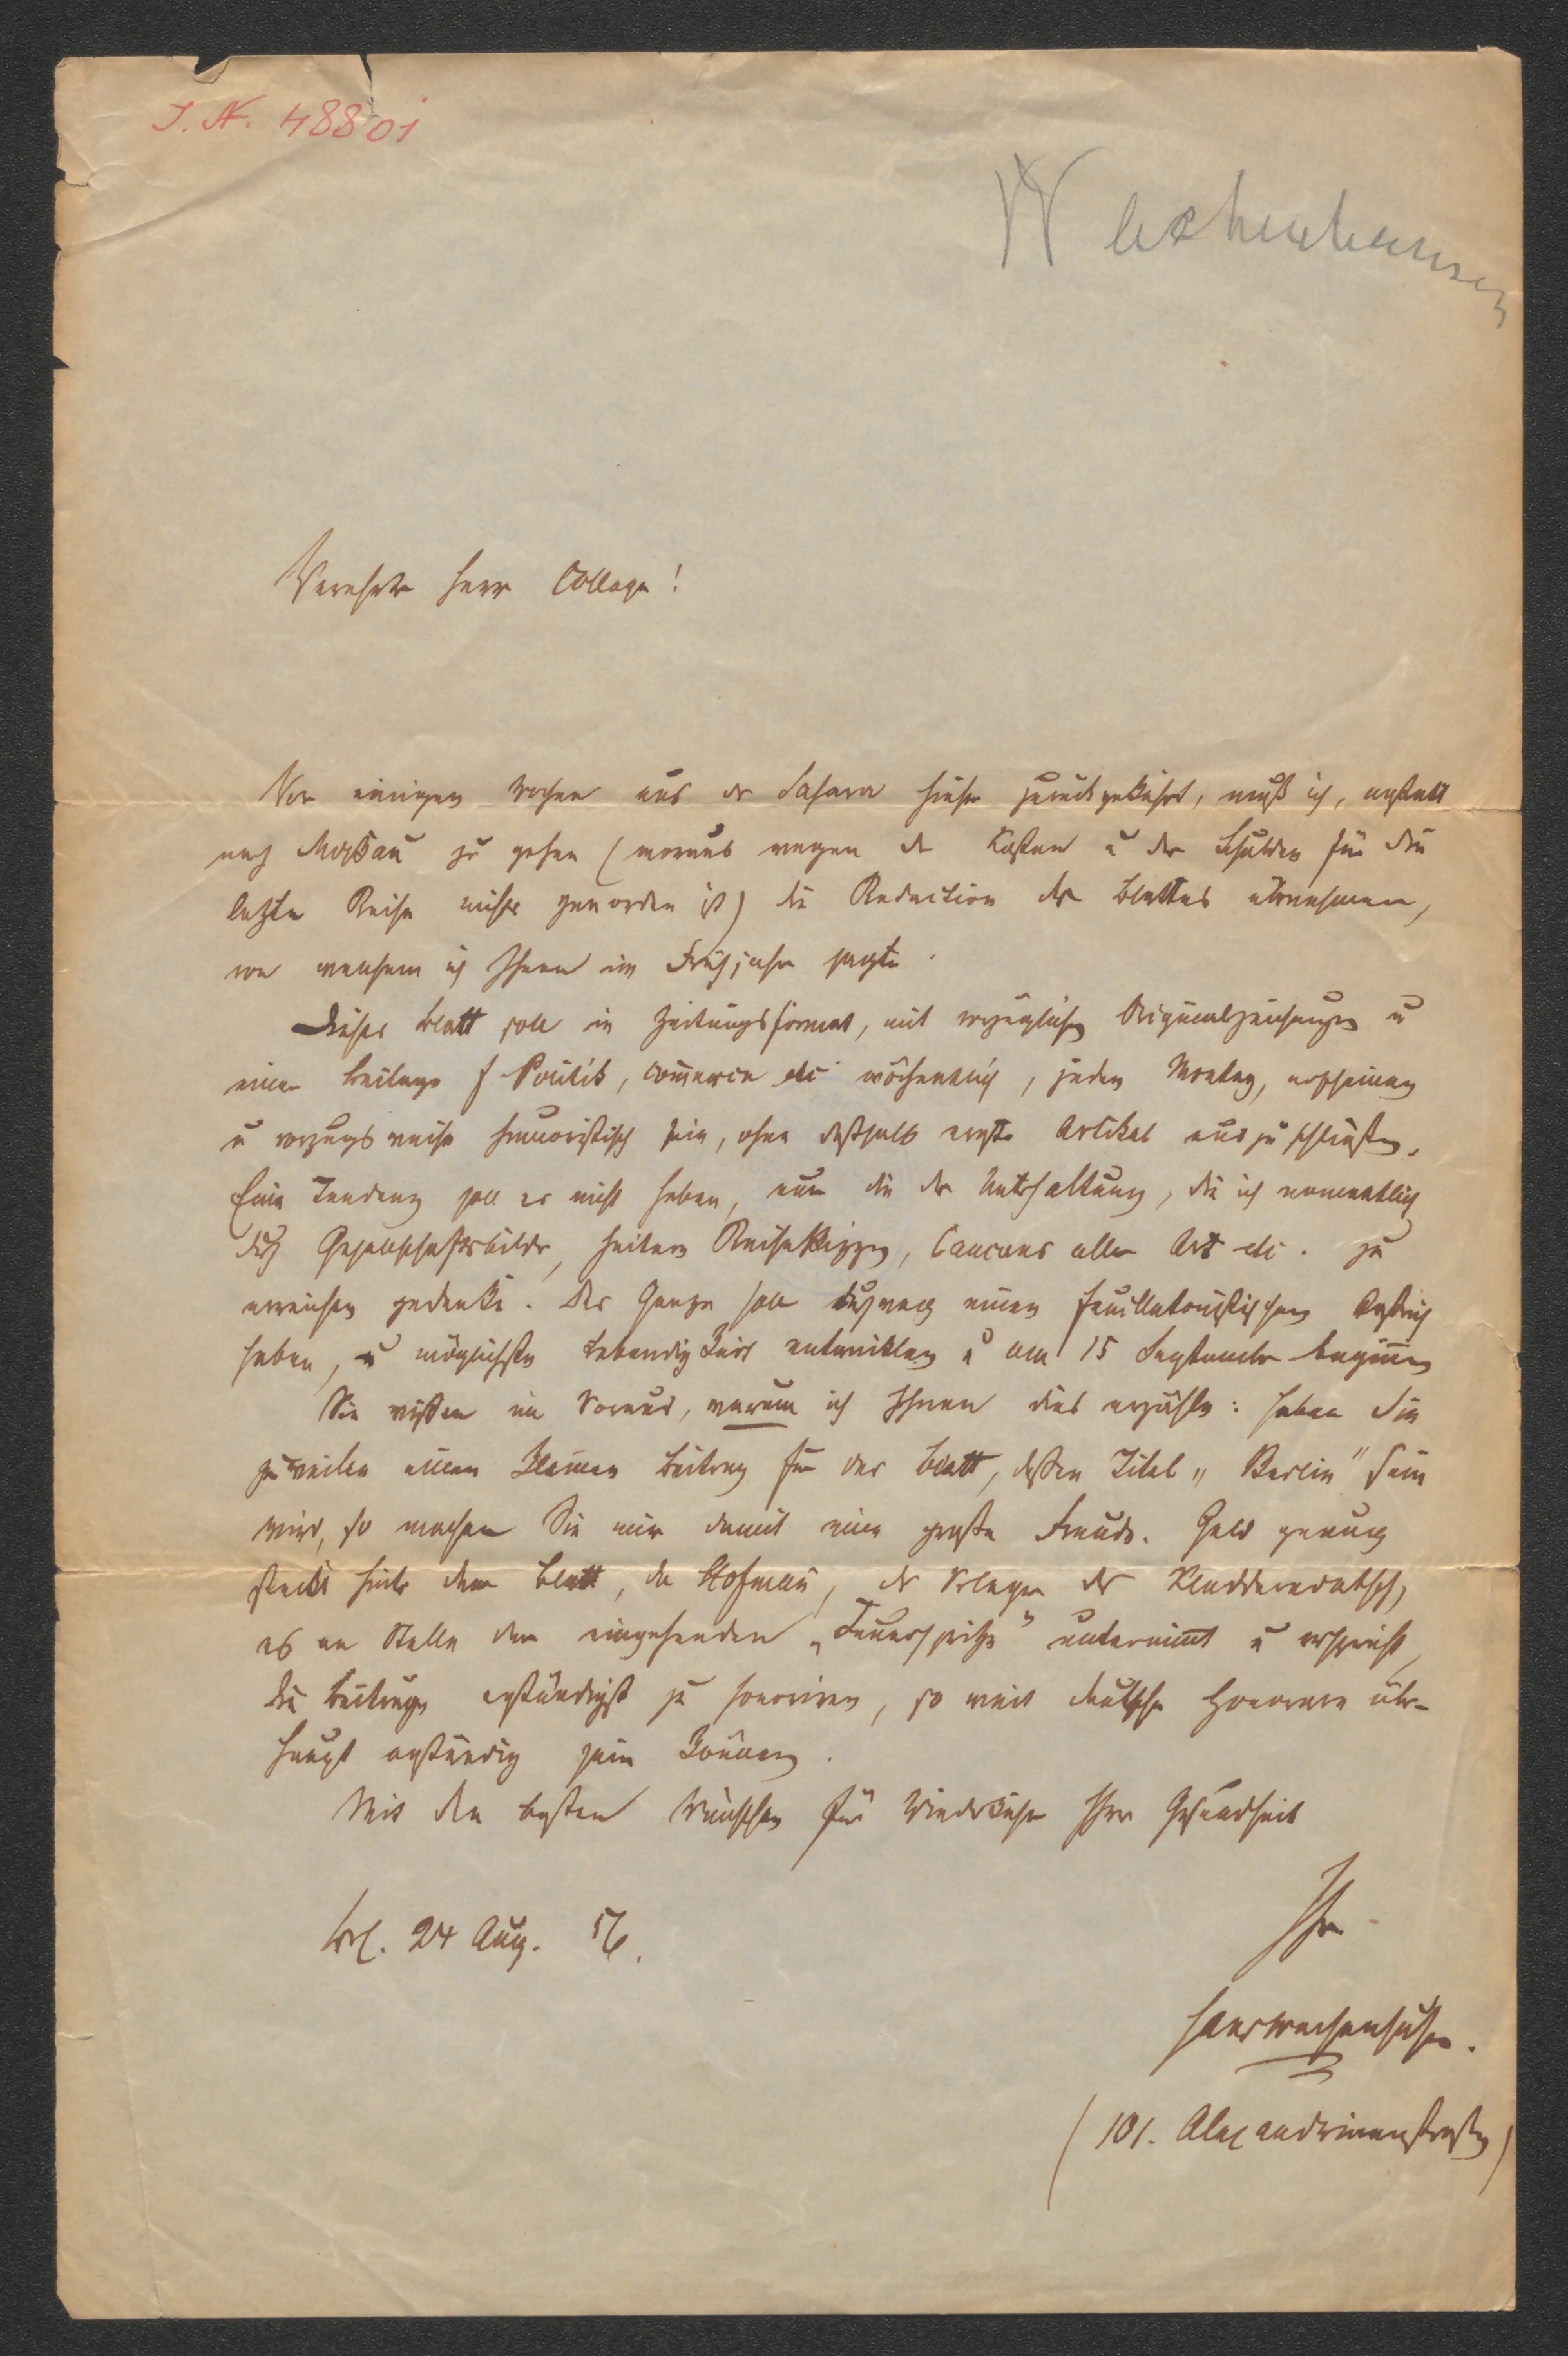 I. N. 48801
Wachenhusen
Verehrter Herr College!
Vor einigen Wochen aus der Sahara hieher zurückgekehrt, muß ich, anstatt
nach Moskau zu gehen (woraus wegen der Kosten u der Schulden für die
letzte Reise nichts geworden ist) die Redaction des Blattes übernehmen,
von welchem ich Ihnen im Frühjahr sagte.
Dieses Blatt soll in Zeitungsformat, mit vorzüglichen Originalzeichnungen u
einer Beilage f Politik, Commerce etc wöchentlich, jeden Montag, erscheinen
u vorzugsweise humoristisch sein, ohne deßhalb ernste Artikel auszuschließen.
Eine Tendenz soll es nicht haben, nur die der Unterhaltung, die ich namentlich
durch Gesellschaftsbilder, heitere Reiseskizzen, Cancans aller Art etc. zu
erreichen gedenke. Das Ganze soll durchweg einen feuilletonistischen Anstrich
haben, u möglichste Lebendigkeit entwickeln u am 15 September beginnen
Sie wissen im Voraus, warum ich Ihnen dies erzähle: haben Sie
zuweilen einen kleinen Beitrag für das Blatt, dessen Titel „Berlin" sein
wird, so machen Sie mir damit eine große Freude. Geld genug
steckt hinter dem Blatt, da Hofmann, der Verleger des Kladderadatsch,
es an Stelle der eingehenden „Feuerspritze" unternimmt u verspricht,
die Beiträge anständigst zu honoriren, so weit deutsche Honorare über-
haupt anständig sein können.
Mit den besten Wünschen für Wiederkehr Ihrer Gesundheit
Brl. 24 Aug. 56.
Ihr
Hans Wachenhusen.
(101. Alexandrinenstraße)